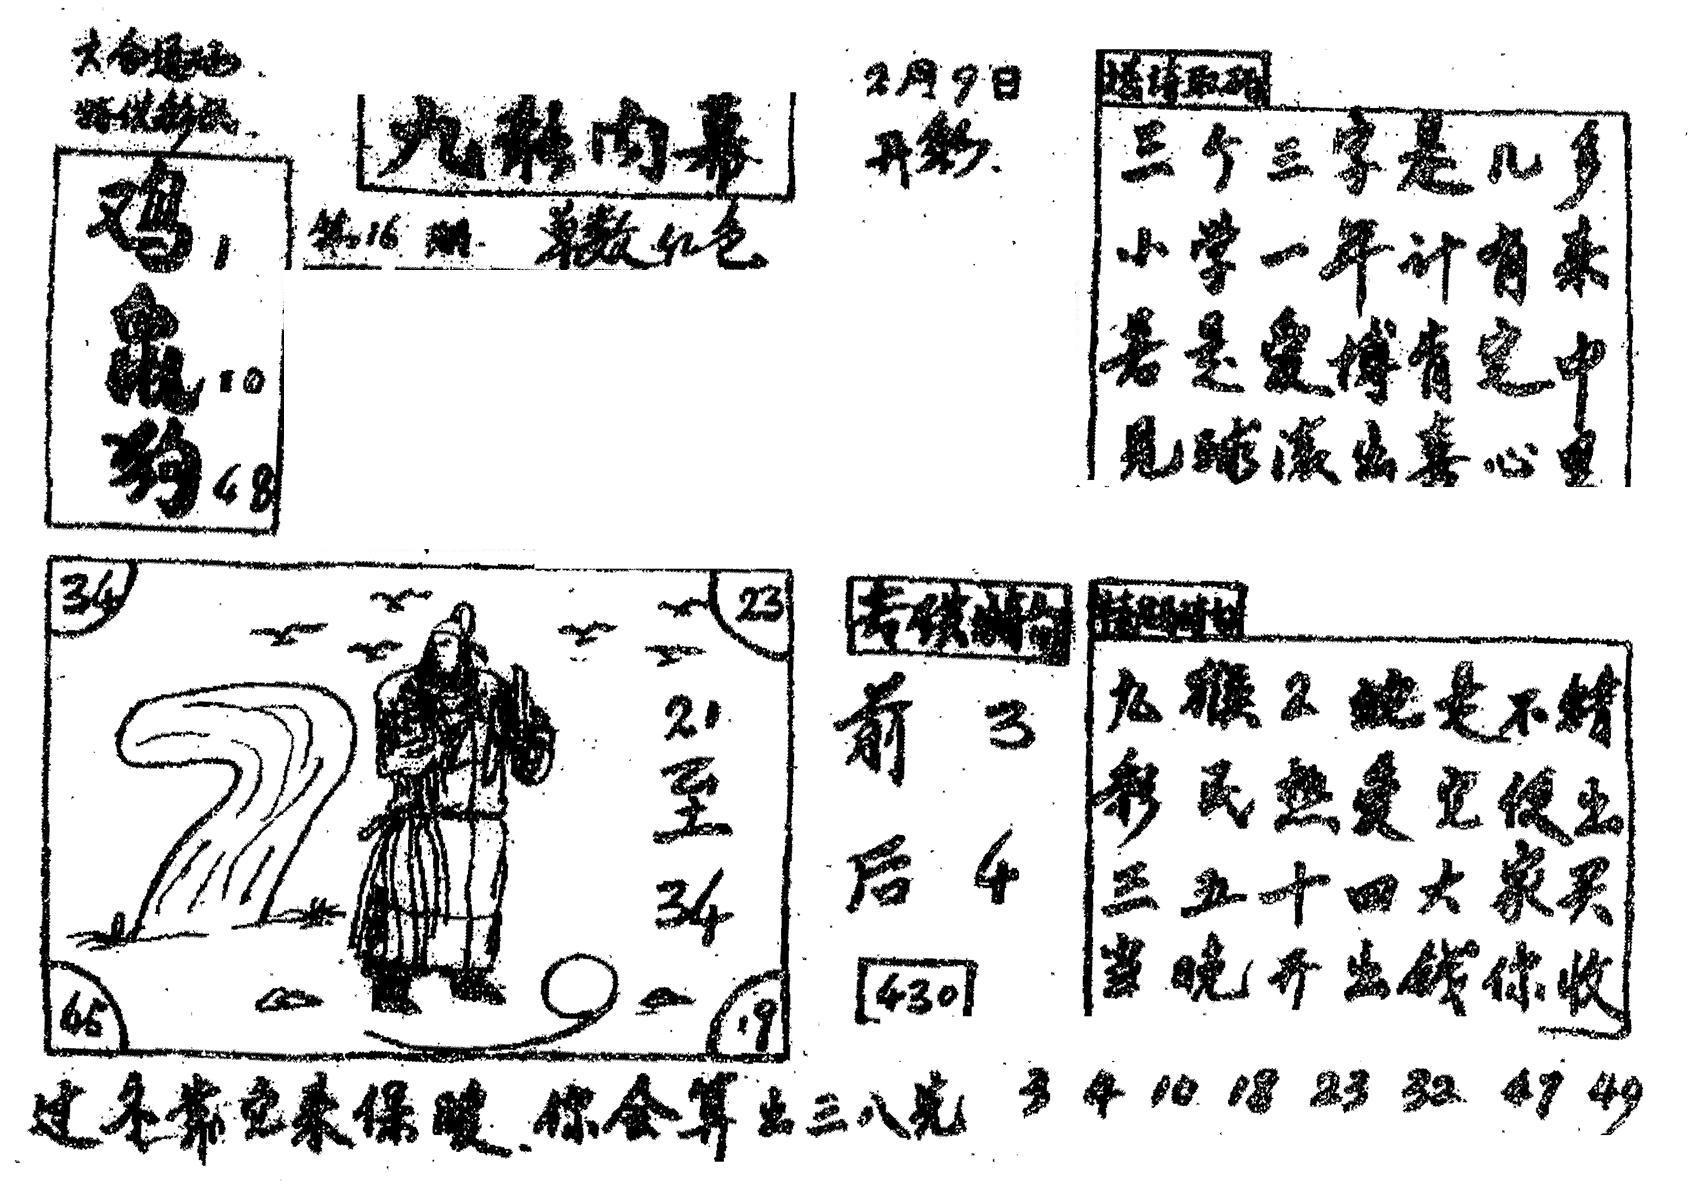 鸡 1
龜 10
狗 48
九彩内幕
第16期 单数红色
2月9日
开彩.
三个三字是几多
小学一年计有来
若是爱博肯定中
见球滚出喜心里
34
23
21至34
45
19
前 3
后 4
430
九猴2蛇是不错
彩民热爱它便出
三五十四大家买
当晚开出钱你收
过冬靠它来保暖.你会算出三八完
3 4 10 18 23 32 47 49